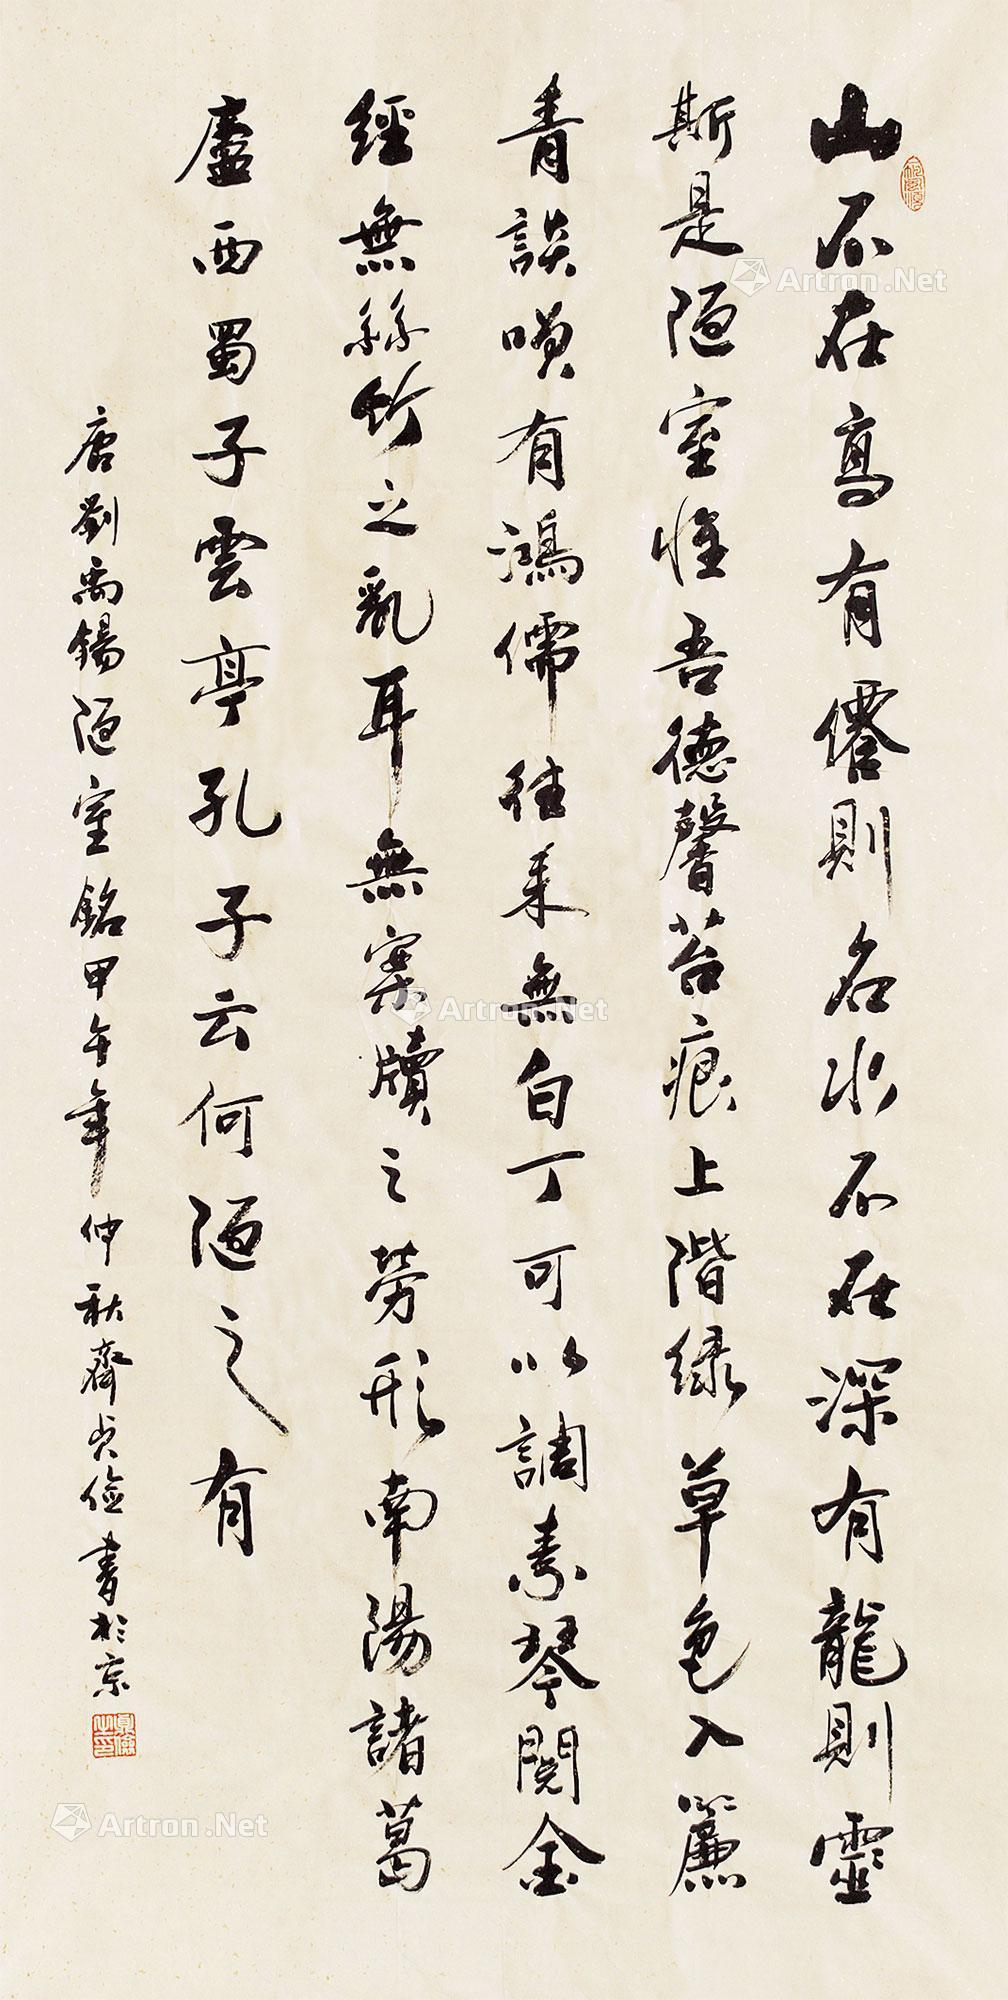 山不在高有僊則名水不在深有龍則靈
斯是陋室惟吾德馨苔痕上階緑草色入簾
青談嘆有鴻儒往来無白丁可以調素琴閱金
經無絲竹之亂耳無案牘之勞形南陽諸葛
廬西蜀子雲亭孔子云何陋之有
唐劉禹錫陋室銘甲午年仲秋齊貞儉書於京
Artron.Net
Artron.Net
Artron.Net